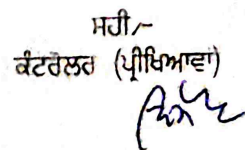 ਸਹੀ/-
ਕੰਟਰੋਲਰ (ਪ੍ਰੀਖਿਆਵਾਂ)